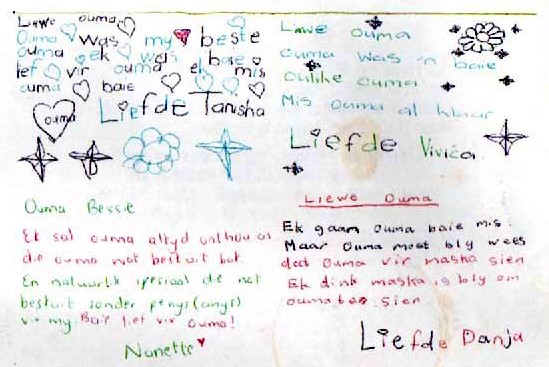 Liewe ouma
Ouma was my beste
ouma ek was baie
lief vir ouma ek mis
ouma baie
Liefde Tanisha
ouma
Liewe ouma
ouma was 'n baie
oulike ouma
Mis ouma al klaar
Liefde Vivica
Ouma Bessie
Ek sal ouma altyd onthou as
die ouma wat beskuit bak.
En natuurlik spesiaal die net
beskuit sonder
vir my. Baie lief vir ouma!
Nanette
Liewe Ouma
Ek gaan Ouma baie mis.
Maar Ouma moet bly wees
dat Ouma vir maska sien
Ek dink maska is bly om
ouma te sien
Liefde Danja